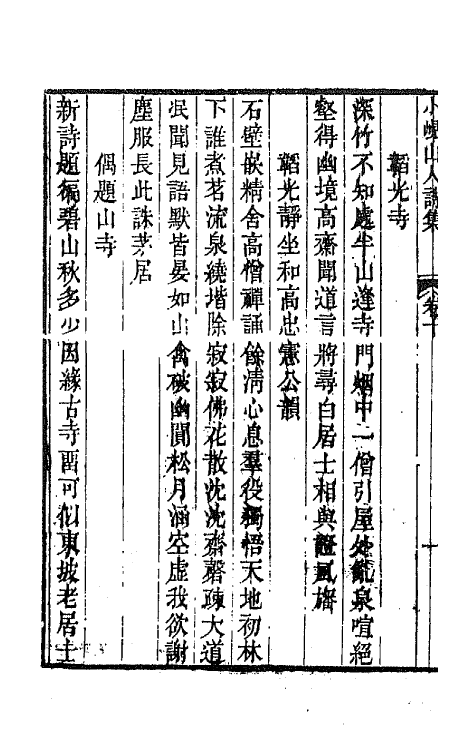 小峴山人詩集 卷一 十
韜光寺
深竹不知處半山逢寺門烟中一僧引屋外亂泉喧絕
壑得幽境高齋聞道言將尋白居士相與證風旛
韜光靜坐和高忠憲公韻
石壁嵌精舍高僧禪誦餘淸心息羣役獨悟天地初林
下誰煮茗流泉繞堦除寂寂佛花散沈沈齋磬疎大道
泯聞見語默皆晏如山禽破幽閴松月涵空虛我欲謝
塵服長此誅茅居
偶題山寺
新詩題徧碧山秋多少因緣古寺畱可似東坡老居士